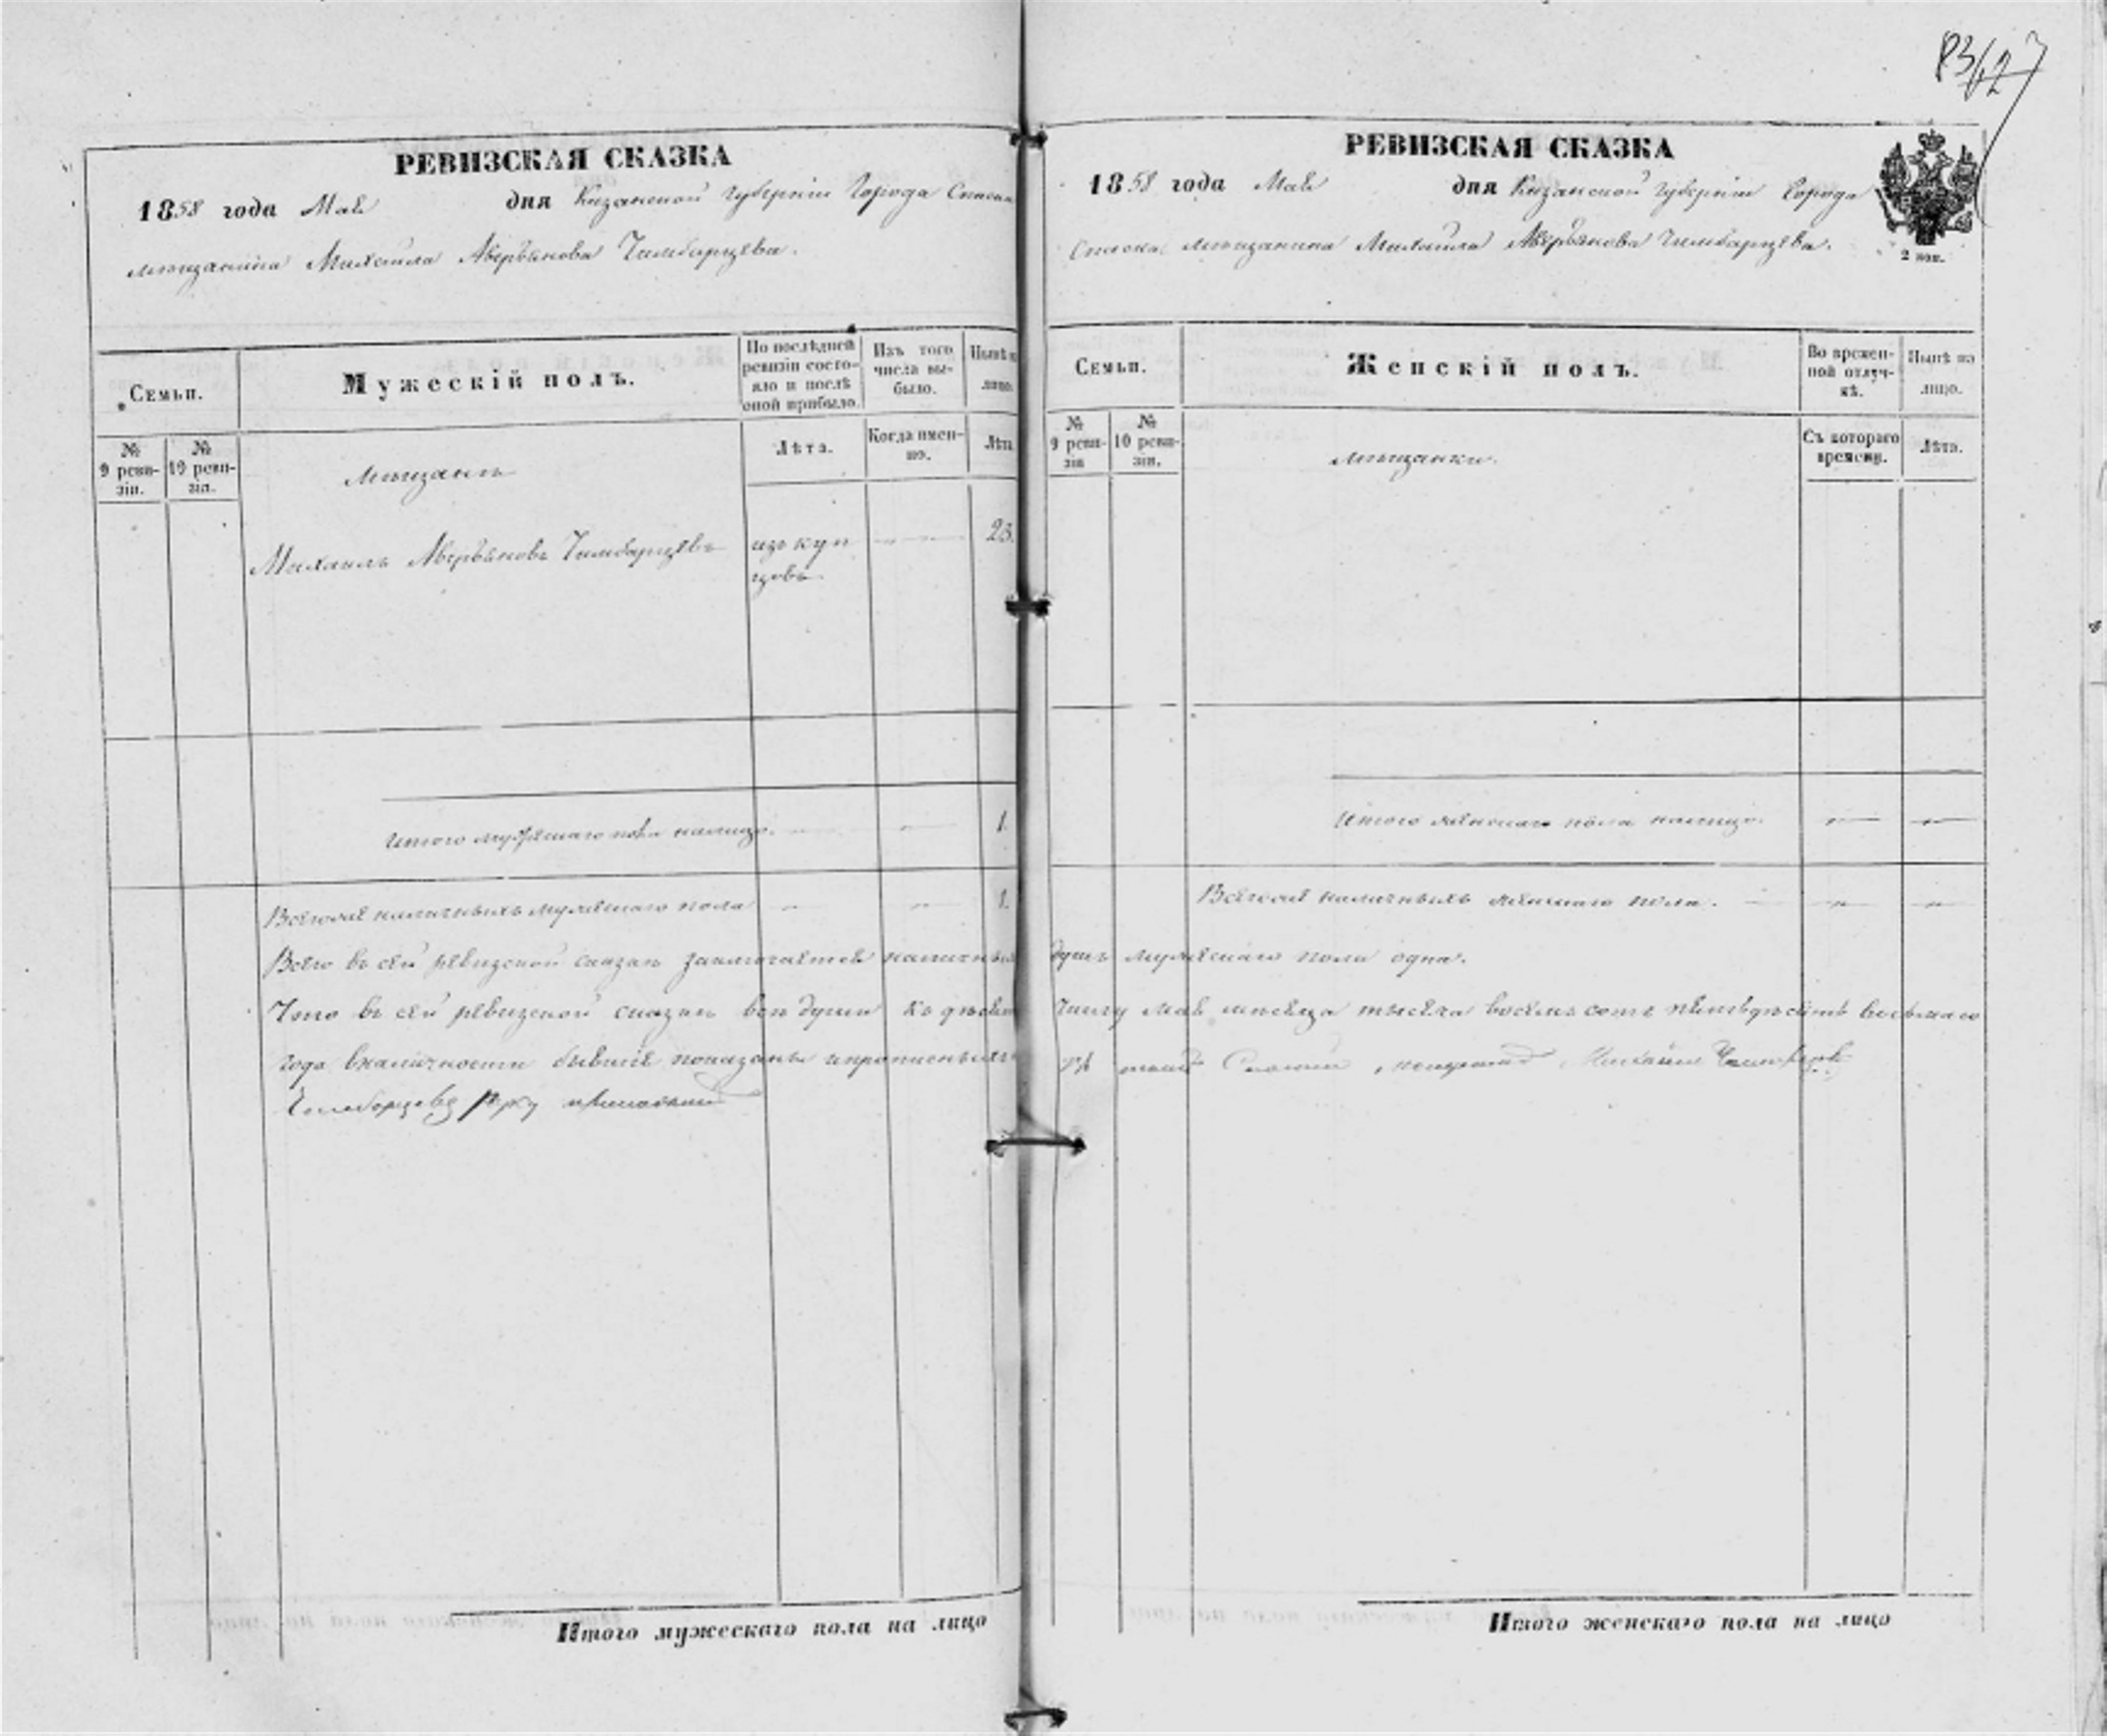 РЕВИЗСКАЯ СКАЗКА
1858 года Мая дня Казанской Губерніи Города Спасска
мѣщанина Михаила Аверьянова Чимбарцева.
Семьи.
Мужескій полъ.
По послѣдней ревизіи состояло и послѣ оной прибыло.
Изъ того числа выбыло.
Нынѣ на лицо.
№ 9 ревизіи.
№ 10 ревизіи.
Лѣта.
Когда именно.
Лѣта
Мѣщане
Михаилъ Аверьяновъ Чимбарцевъ
изъ купцовъ
23.
Итого мужескаго пола налицо. 1.
Всего же наличныхъ мужескаго пола 1.
Всего въ сей ревизской сказкѣ заключается наличныхъ
Что въ сей ревизской сказкѣ всѣ души къ десятому
года вналичности бывшіе показаны и прописныхъ
Чимборцевъ руку приложилъ
Итого мужескаго пола на лицо
РЕВИЗСКАЯ СКАЗКА
1858 года Мая дня Казанской Губерніи Города
Спаска мѣщанина Михаила Аверьянова Чимбарцева.
2 коп.
Семьи.
Женскій полъ.
Во временной отлучкѣ.
Нынѣ на лицо.
№ 9 ревизіи
№ 10 ревизіи.
Съ котораго времени.
Лѣта.
мѣщанки.
Итого женскаго пола налицо.
Всего же наличныхъ женскаго пола.
душъ мужескаго пола одна.
числу Мая мѣсяца тысяча восемь сотъ пятьдесятъ восьмаго
Михаилъ
Итого женскаго пола на лицо